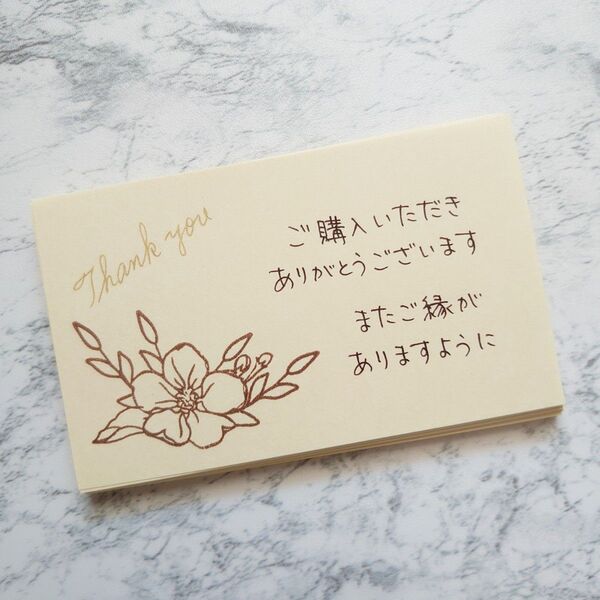 Thank you
ご購入いただき
ありがとうございます
またご縁が
ありますように